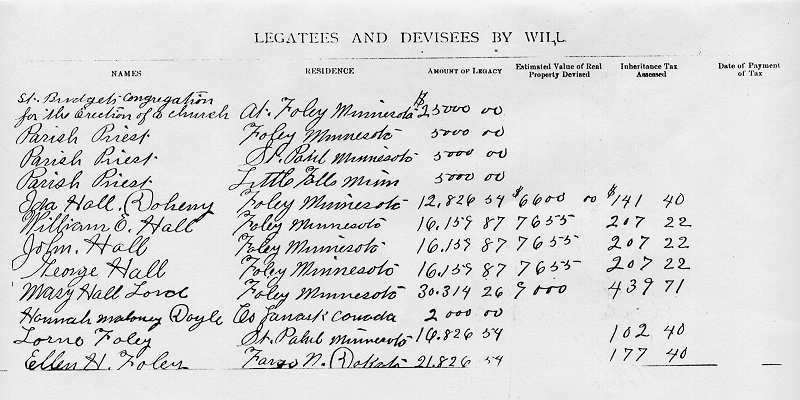 LEGATEES AND DEVISEES BY WILL
NAMES RESIDENCE AMOUNT OF LEGACY Estimated Value of Real Property Devised Inheritance Tax Assessed Date of Payment of Tax
St. Bridgets Congregation
for the Erection of a church At. Foley Minnesota $25000 00
Parish Priest Foley Minnesota 5000 00
Parish Priest St. Pahul Minnesota 5000 00
Parish Priest Little Falls Minn 5000 00
Ida Hall. Doheny Foley Minnesota 12,826 54 $6600 00 $141 40
William E. Hall Foley Minnesota 16.159 87 7655 207 22
John. Hall Foley Minnesota 16.159 87 7655 207 22
George Hall Foley Minnesota 16.159 87 7655 207 22
Mary Hall Lord Foley Minnesota 30.314 26 9000 439 71
Hannah maloney Doyle Co Lanark Canada 2 000 00
Lorne Foley St. Pahul Minnesota 16.826 54 102 40
Ellen H. Foley Fargo N. Dakota 21.826 54 177 40